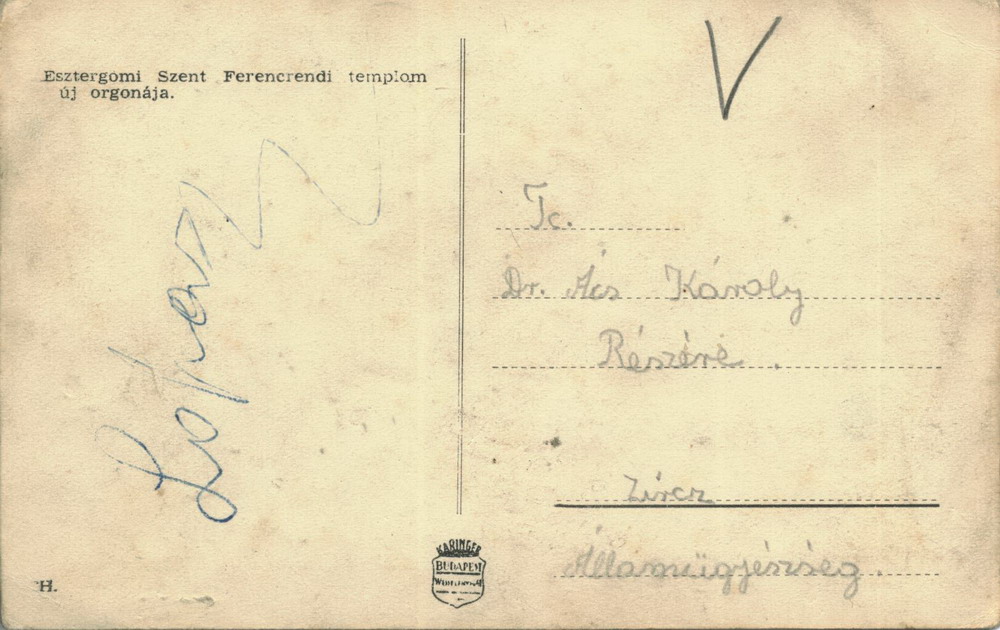 Esztergomi Szent Ferencrendi templom
új orgonája.
V
Tc.
Dr. Ács Károly
Részére.
Zircz
Államügyészség.
KARINGER
BUDAPEST
H.